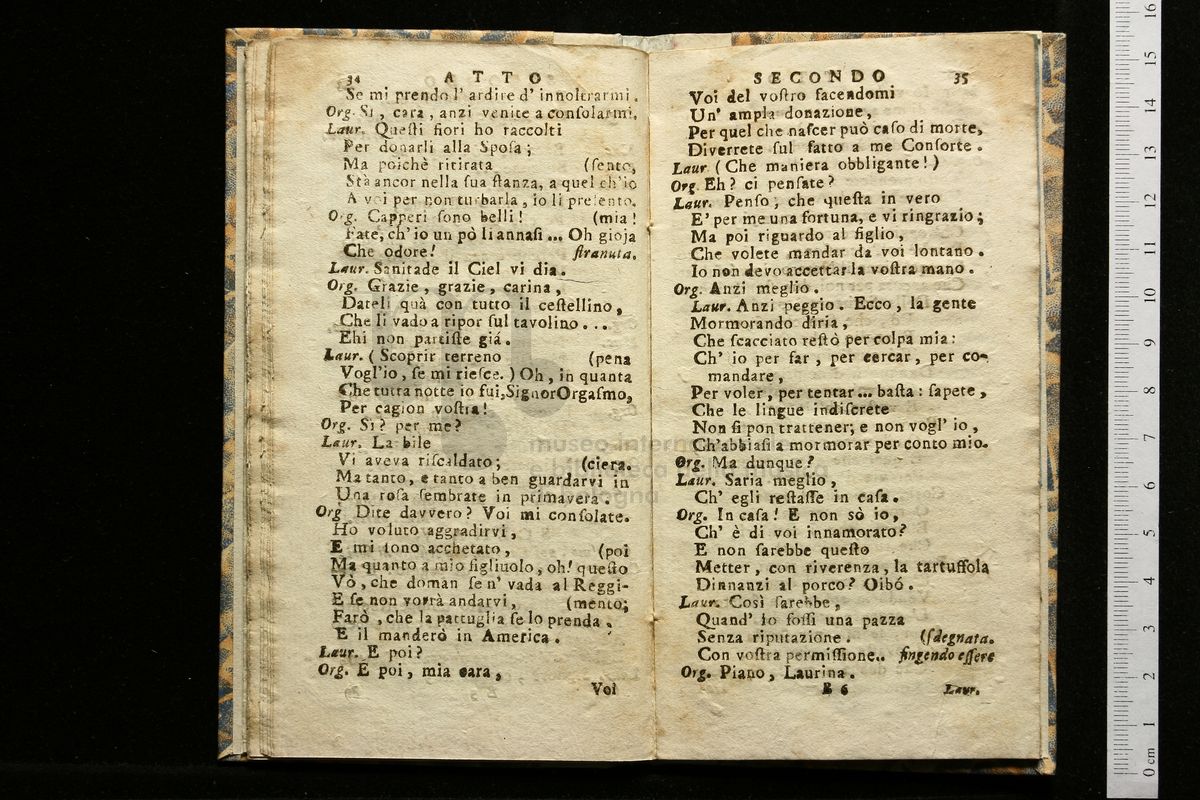 34 ATTO
Se mi prendo l' ardire d' innoltrarmi.
Org. Si, cara, anzi venite a consolarmi.
Laur. Questi fiori ho raccolti
Per donarli alla Sposa;
Ma poichè ritirata (sento,
Stà ancor nella sua stanza, a quel ch'io
A voi per non turbarla, io li presento.
Org. Capperi sono belli! (mia!
Fate, ch'io un pò li annasi... Oh gioja
Che odore! stranuta.
Laur. Sanitade il Ciel vi dia.
Org. Grazie, grazie, carina,
Dateli quà con tutto il cestellino,
Che li vado a ripor sul tavolino...
Ehi non partiste giá.
Laur. (Scoprir terreno (pena
Vogl'io, se mi riesce.) Oh, in quanta
Che tutta notte io fui, Signor Orgasmo,
Per cagion vostra!
Org. Si? per me?
Laur. La bile
Vi aveva riscaldato; (ciera.
Ma tanto, e tanto a ben guardarvi in
Una rosa sembrate in primavera.
Org Dite davvero? Voi mi consolate.
Ho voluto aggradirvi,
E mi sono acchetato, (poi
Ma quanto a mio figliuolo, oh! questo
Vò, che doman se n' vada al Reggi-
E se non vorrà andarvi, (mento;
Farò, che la pattuglia se lo prenda,
E il manderò in America.
Laur. E poi?
Org. E poi, mia cara,
Voi
SECONDO 35
Voi del vostro facendomi
Un' ampla donazione,
Per quel che nascer può caso di morte,
Diverrete sul fatto a me Consorte.
Laur (Che maniera obbligante!)
Org. Eh? ci pensate?
Laur. Penso, che questa in vero
E' per me una fortuna, e vi ringrazio;
Ma poi riguardo al figlio,
Che volete mandar da voi lontano.
Io non devo accettar la vostra mano.
Org. Anzi meglio.
Laur. Anzi peggio. Ecco, la gente
Mormorando diria,
Che scacciato restò per colpa mia:
Ch' io per far, per cercar, per co-
mandare,
Per voler, per tentar... basta: sapete,
Che le lingue indiscrete
Non si pon trattener; e non vogl' io,
Ch'abbiasi a mormorar per conto mio.
Org. Ma dunque?
Laur. Saria meglio,
Ch' egli restasse in casa.
Org. In casa! E non sò io,
Ch' è di voi innamorato?
E non sarebbe questo
Metter, con riverenza, la tartuffola
Dinnanzi al porco? Oibó.
Laur. Così sarebbe,
Quand' io fossi una pazza
Senza riputazione. (sdegnata.
Con vostra permissione.. fingendo essere
Org. Piano, Laurina.
B 6 Laur.